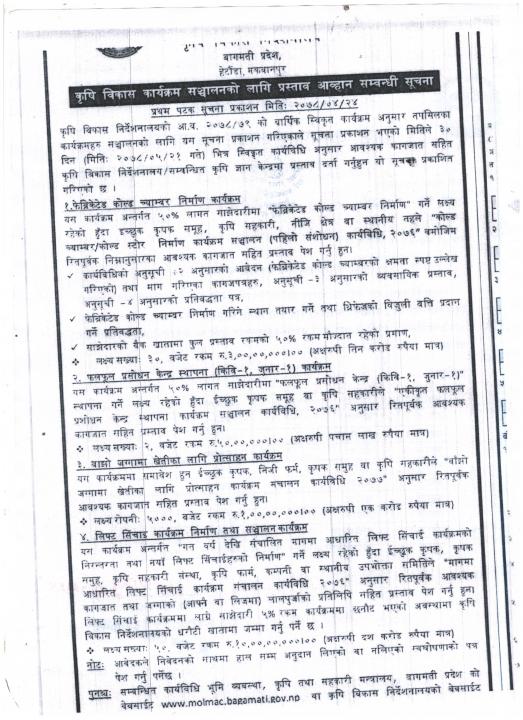 कृषि विकास निर्देशनालय
बागमती प्रदेश,
हेटौंडा, मकवानपुर
कृषि विकास कार्यक्रम सञ्चालनको लागि प्रस्ताव आव्हान सम्बन्धी सूचना
प्रथम पटक सूचना प्रकाशन मितिः २०७८/०४/२४
कृषि विकास निर्देशनालयको आ.व. २०७८/७९ को वार्षिक स्विकृत कार्यक्रम अनुसार तपसिलका
कार्यक्रमहरु सञ्चालनको लागि यस सूचना प्रकाशन गरिएकाले सूचना प्रकाशन भएको मितिले ३०
दिन (मितिः २०७८/०५/२१ गते) भित्र स्विकृत कार्यविधि अनुसार आवश्यक कागजात सहित
कृषि विकास निर्देशनालय/सम्बन्धित कृषि ज्ञान केन्द्रमा प्रस्ताव दर्ता गर्नुहुन यो सूचना प्रकाशित
गरिएको छ ।
१.फेब्रिकेटेड कोल्ड च्याम्बर निर्माण कार्यक्रम
यस कार्यक्रम अन्तर्गत ५०% लागत साझेदारीमा "फेब्रिकेटेड कोल्ड च्याम्बर निर्माण" गर्ने लक्ष्य
रहेको हुँदा ईच्छुक कृषक समूह, कृषि सहकारी, नीजि क्षेत्र वा स्थानीय तहले "कोल्ड
च्याम्बर/कोल्ड स्टोर निर्माण कार्यक्रम सञ्चालन (पहिलो संशोधन) कार्यविधि, २०७६" बमोजिम
रितपूर्वक निम्नानुसारका आवश्यक कागजात सहित प्रस्ताव पेश गर्नु हुन।
✓ कार्यविधिको अनुसूची -२ अनुसारको आवेदन (फेब्रिकेटेड कोल्ड च्याम्बरको क्षमता स्पष्ट उल्लेख
गरिएको) तथा माग गरिएका कागजपत्रहरु, अनुसूची -३ अनुसारको व्यवसायिक प्रस्ताव,
अनुसूची -४ अनुसारको प्रतिबद्धता पत्र,
✓ फेब्रिकेटेड कोल्ड च्याम्बर निर्माण गरिने स्थान तयार गर्ने तथा थ्रिफेजको विजुली बत्ति प्रदान
गर्ने प्रतिबद्धता,
✓ साझेदारको बैंक खातामा कुल प्रस्ताव रकमको ५०% रकम मौज्दात रहेको प्रमाण,
❖ लक्ष्य सख्याः ३०, वजेट रकम रु.३,००,००,०००।०० (अक्षरुपी तिन करोड रुपैया मात्र)
२. फलफूल प्रसोधन केन्द्र स्थापना (किवि-१, जुनार-१) कार्यक्रम
यस कार्यक्रम अन्तर्गत ५०% लागत साझेदारीमा "फलफूल प्रसोधन केन्द्र (किवि-१, जुनार-१)"
स्थापना गर्ने लक्ष्य रहेको हुँदा ईच्छुक कृषक समूह वा कृषि सहकारीले "एकीकृत फलफूल
प्रशोधन केन्द्र स्थापना कार्यक्रम सञ्चालन कार्यविधि, २०७६" अनुसार रितपूर्वक आवश्यक
कागजात सहित प्रस्ताव पेश गर्नु हुन।
❖ लक्ष्य सख्याः २, वजेट रकम रु.५०,००,०००।०० (अक्षरुपी पचास लाख रुपैया मात्र)
३. बाझो जग्गामा खेतीका लागि प्रोत्साहन कार्यक्रम
यस कार्यक्रममा समावेश हुन ईच्छुक कृषक, निजी फर्म, कृषक समूह वा कृषि सहकारीले "बाँझो
जग्गामा खेतीका लागि प्रोत्साहन कार्यक्रम संचालन कार्यविधि २०७७" अनुसार रितपूर्वक
आवश्यक कागजात सहित प्रस्ताव पेश गर्नु हुन।
❖ लक्ष्य रोपनीः ५०००, वजेट रकम रु.१,००,००,०००।०० (अक्षरुपी एक करोड रुपैया मात्र)
४. लिफ्ट सिंचाई कार्यक्रम निर्माण तथा सञ्चालन कार्यक्रम
यस कार्यक्रम अन्तर्गत "गत वर्ष देखि संचालित मागमा आधारित लिफ्ट सिंचाई कार्यक्रमको
निरन्तरता तथा नयाँ लिफ्ट सिंचाईहरुको निर्माण" गर्ने लक्ष्य रहेको हुँदा ईच्छुक कृषक, कृषक
समूह, कृषि सहकारी संस्था, कृषि फर्म, कम्पनी वा स्थानीय उपभोक्ता समितिले "मागमा
आधारित लिफ्ट सिंचाई कार्यक्रम संचालन कार्यविधि २०७६" अनुसार रितपूर्वक आवश्यक
कागजात तथा जग्गाको (आफ्नै वा लिजमा) लालपुर्जाको प्रतिलिपि सहित प्रस्ताव पेश गर्नु हुन।
लिफ्ट सिंचाई कार्यक्रममा लाग्ने साझेदारी ५% रकम कार्यक्रममा छनौट भएको अवस्थामा कृषि
विकास निर्देशनालयको धरौटी खातामा जम्मा गर्नु पर्ने छ ।
❖ लक्ष्य सख्याः ५०, वजेट रकम रु.१०,००,००,०००।०० (अक्षरुपी दश करोड रुपैया मात्र)
नोटः आवेदकले निवेदनको साथमा हाल सम्म अनुदान लिएको वा नलिएको स्वघोषणाको पत्र
पेश गर्नु पर्नेछ ।
पुनश्चः सम्बन्धित कार्यविधि भूमि व्यवस्था, कृषि तथा सहकारी मन्त्रालय, बागमती प्रदेश को
वेबसाईट www.molmac.bagamati.gov.np वा कृषि विकास निर्देशनालयको वेबसाईट